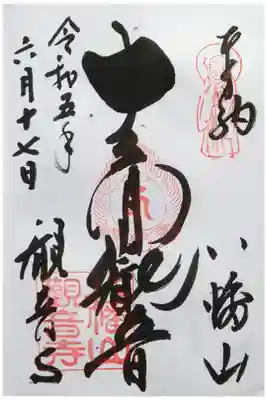 奉納
八幡山
十一面観音
観音寺
令和五年
六月十七日
觀音寺